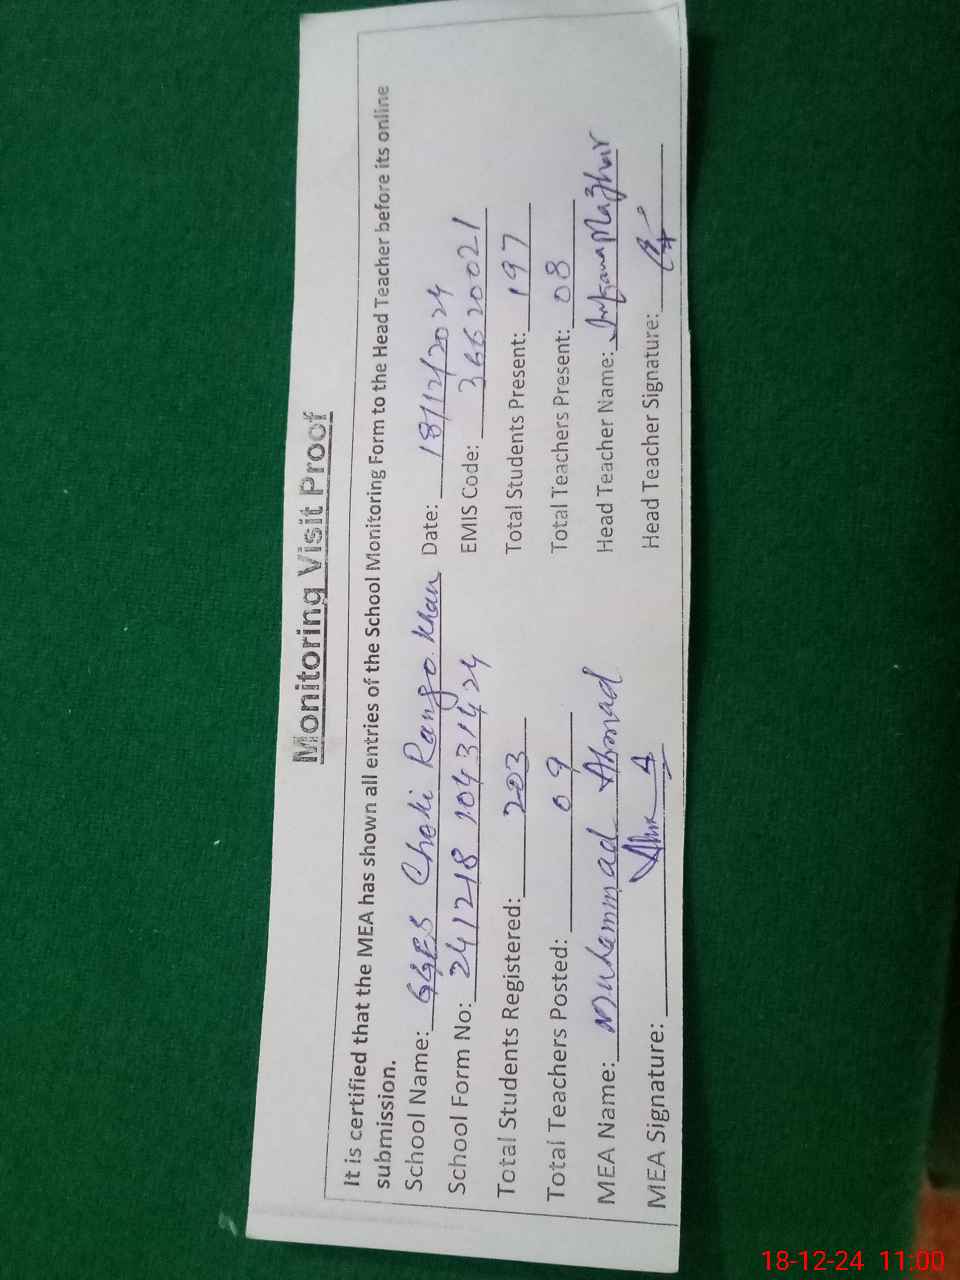 Monitoring Visit Proof
It is certified that the MEA has shown all entries of the School Monitoring Form to the Head Teacher before its online
submission.
School Name: GGES Choki Rango Khan Date: 18/12/2024
School Form No: 241218 104 314 24 EMIS Code: 36620021
Total Students Registered: 203 Total Students Present: 197
Total Teachers Posted: 09 Total Teachers Present: 08
MEA Name: Muhammad Ahmad Head Teacher Name: Mazhar
MEA Signature: Head Teacher Signature:
18-12-24 11:00